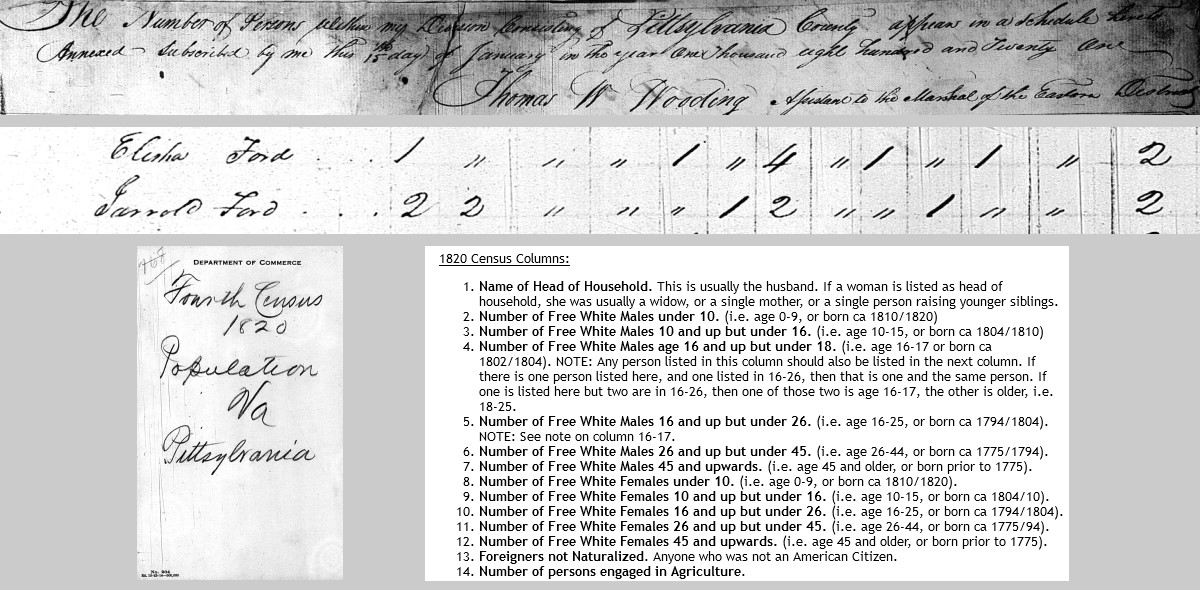 The Number of Persons within my Division Consisting of Pittsylvania County appears in a Schedule hereto
Annexed Subscribed by me this 15th day of January in the year One thousand eight hundred and Twenty One
Thomas W Wooding Assistant to the Marshal of the Eastern District
Elisha Ford . . . . 1 " " " 1 " 4 " 1 " 1 " 2
Jarrold Ford . . . . 2 2 " " " 1 2 " " 1 " " 2
DEPARTMENT OF COMMERCE
Fourth Census
1820
Population
Va
Pittsylvania
1820 Census Columns:
1. Name of Head of Household. This is usually the husband. If a woman is listed as head of
household, she was usually a widow, or a single mother, or a single person raising younger siblings.
2. Number of Free White Males under 10. (i.e. age 0-9, or born ca 1810/1820)
3. Number of Free White Males 10 and up but under 16. (i.e. age 10-15, or born ca 1804/1810)
4. Number of Free White Males age 16 and up but under 18. (i.e. age 16-17 or born ca
1802/1804). NOTE: Any person listed in this column should also be listed in the next column. If
there is one person listed here, and one listed in 16-26, then that is one and the same person. If
one is listed here but two are in 16-26, then one of those two is age 16-17, the other is older, i.e.
18-25.
5. Number of Free White Males 16 and up but under 26. (i.e. age 16-25, or born ca 1794/1804).
NOTE: See note on column 16-17.
6. Number of Free White Males 26 and up but under 45. (i.e. age 26-44, or born ca 1775/1794).
7. Number of Free White Males 45 and upwards. (i.e. age 45 and older, or born prior to 1775).
8. Number of Free White Females under 10. (i.e. age 0-9, or born ca 1810/1820).
9. Number of Free White Females 10 and up but under 16. (i.e. age 10-15, or born ca 1804/10).
10. Number of Free White Females 16 and up but under 26. (i.e. age 16-25, or born ca 1794/1804).
11. Number of Free White Females 26 and up but under 45. (i.e. age 26-44, or born ca 1775/94).
12. Number of Free White Females 45 and upwards. (i.e. age 45 and older, or born prior to 1775).
13. Foreigners not Naturalized. Anyone who was not an American Citizen.
14. Number of persons engaged in Agriculture.